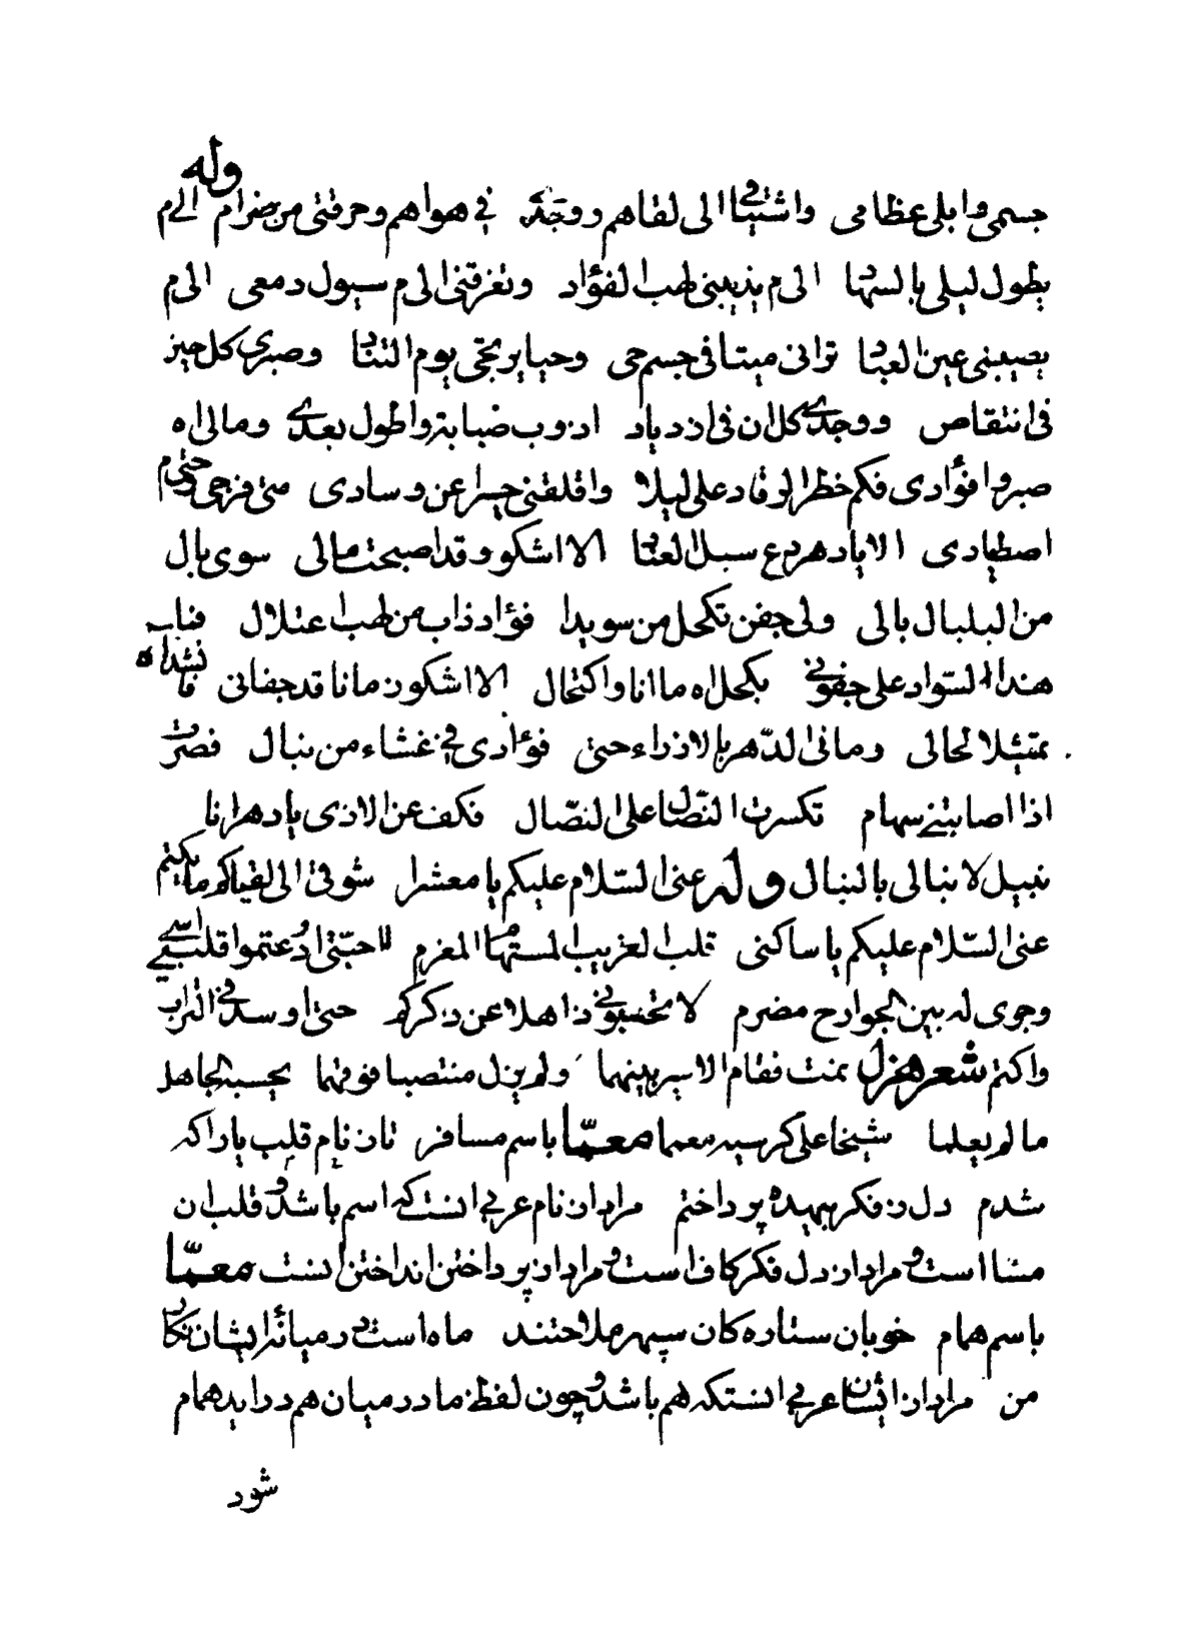 وله
جسمی وابلی عظامی واشتیاقی الی لقاهم ووجدی فی هواهم وحرقتی من ضرام الی م
بطول لیلی بالسهاد الی م یذیبنی طب الفؤاد وتغرقنی الی م سیول دمعی الی م
یصیبنی عین العباد ترانی میتا فی جسم حی وحیا یرتجی یوم التناد وصبری کل حین
فی انتقاص ووجدی کل ان فی ازدیاد اذوب صبابة واطول بعدی ومالی اه
صبر وا فؤادی فکم خطر الرقاد علی لیلا واقلقنی حسرا عن وسادی متی فرجی وحتی م
اصطیادی الا یا دهر دع سبل العناد الا اشکو وقد اصبحت مالی سوی بال
من البلبال بالی ولی جفن تکحل من سویدا فؤاد ذاب من طب اعتلال فناب
هندا السواد علی جفونی بکحل اه ما انا واکتحال الا اشکو زمانا قد جفانی فانشداه
متمثلا لحالی ومانی الدّهر بالارزاء حتی فؤادی فی غشاء من نبال فصرت
اذا اصابتنی سهام تکسرت النّصال علی النصّال فکف عن الاذی یا دهر انا
نبیل لا نبالی بالنبال وله عنی السّلام علیکم یا معشرا شوقی الی لقیاکم ما یکتم
عنی السّلام علیکم یا ساکنی قلب الغریب المستهام المغرم لاحبّتی اودعتموا قلبی اسی
وجوی له بین الجوارح مضرم لا تحسبونی ذاهلا عن ذکرکم حتی اوسد فی التراب
واکتم شعر هزل بمنت فقام الایر بینهما ولم یزل منتصبا فوقهما یحسبه الجاهل
ما لم یعلما شیخا علی کرسیه معمما معمّا باسم مسافر تا از نام قلب یار اکه
شدم دل ز فکر بیهده پرداختم مراد از نام عربی انست که اسم باشد و قلب ان
مسا است و مراد از دل فکر کاف است و مراد از پرداختن انداختن انست معمّا
باسم همام خوبان ستاره کان سپهر ملاحتند ماه است در میانهٔ ایشان نکار
من مراد از ایشان عربی انستکه هم باشد و چون لفظ ما در میان هم دراید همام
شود